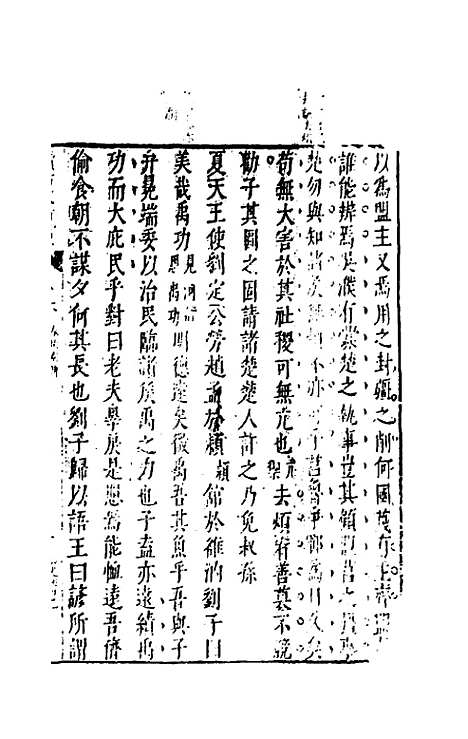 以爲盟主又焉用之封疆之削何國蔑有主齊盟
誰能辨焉吳濮有釁楚之執事豈其顧盟莒之疆
楚勿與知諸侯無煩不亦可乎莒魯爭鄆爲日久矣
苟無大害於其社稷可無亢也去煩宥善莫不競
勸子其圖之固請諸楚楚人許之乃免叔孫
夏天王使劉定公勞趙孟於潁潁館於雒汭劉子曰
美哉禹功見河洛思禹功明德遠矣微禹吾其魚乎吾與子
弁冕端委以治民臨諸侯禹之力也子盍亦遠績禹
功而大庇民乎對曰老夫罪戾是懼焉能恤遠吾儕
偷食朝不謀夕何其長也劉子歸以語王曰諺所謂